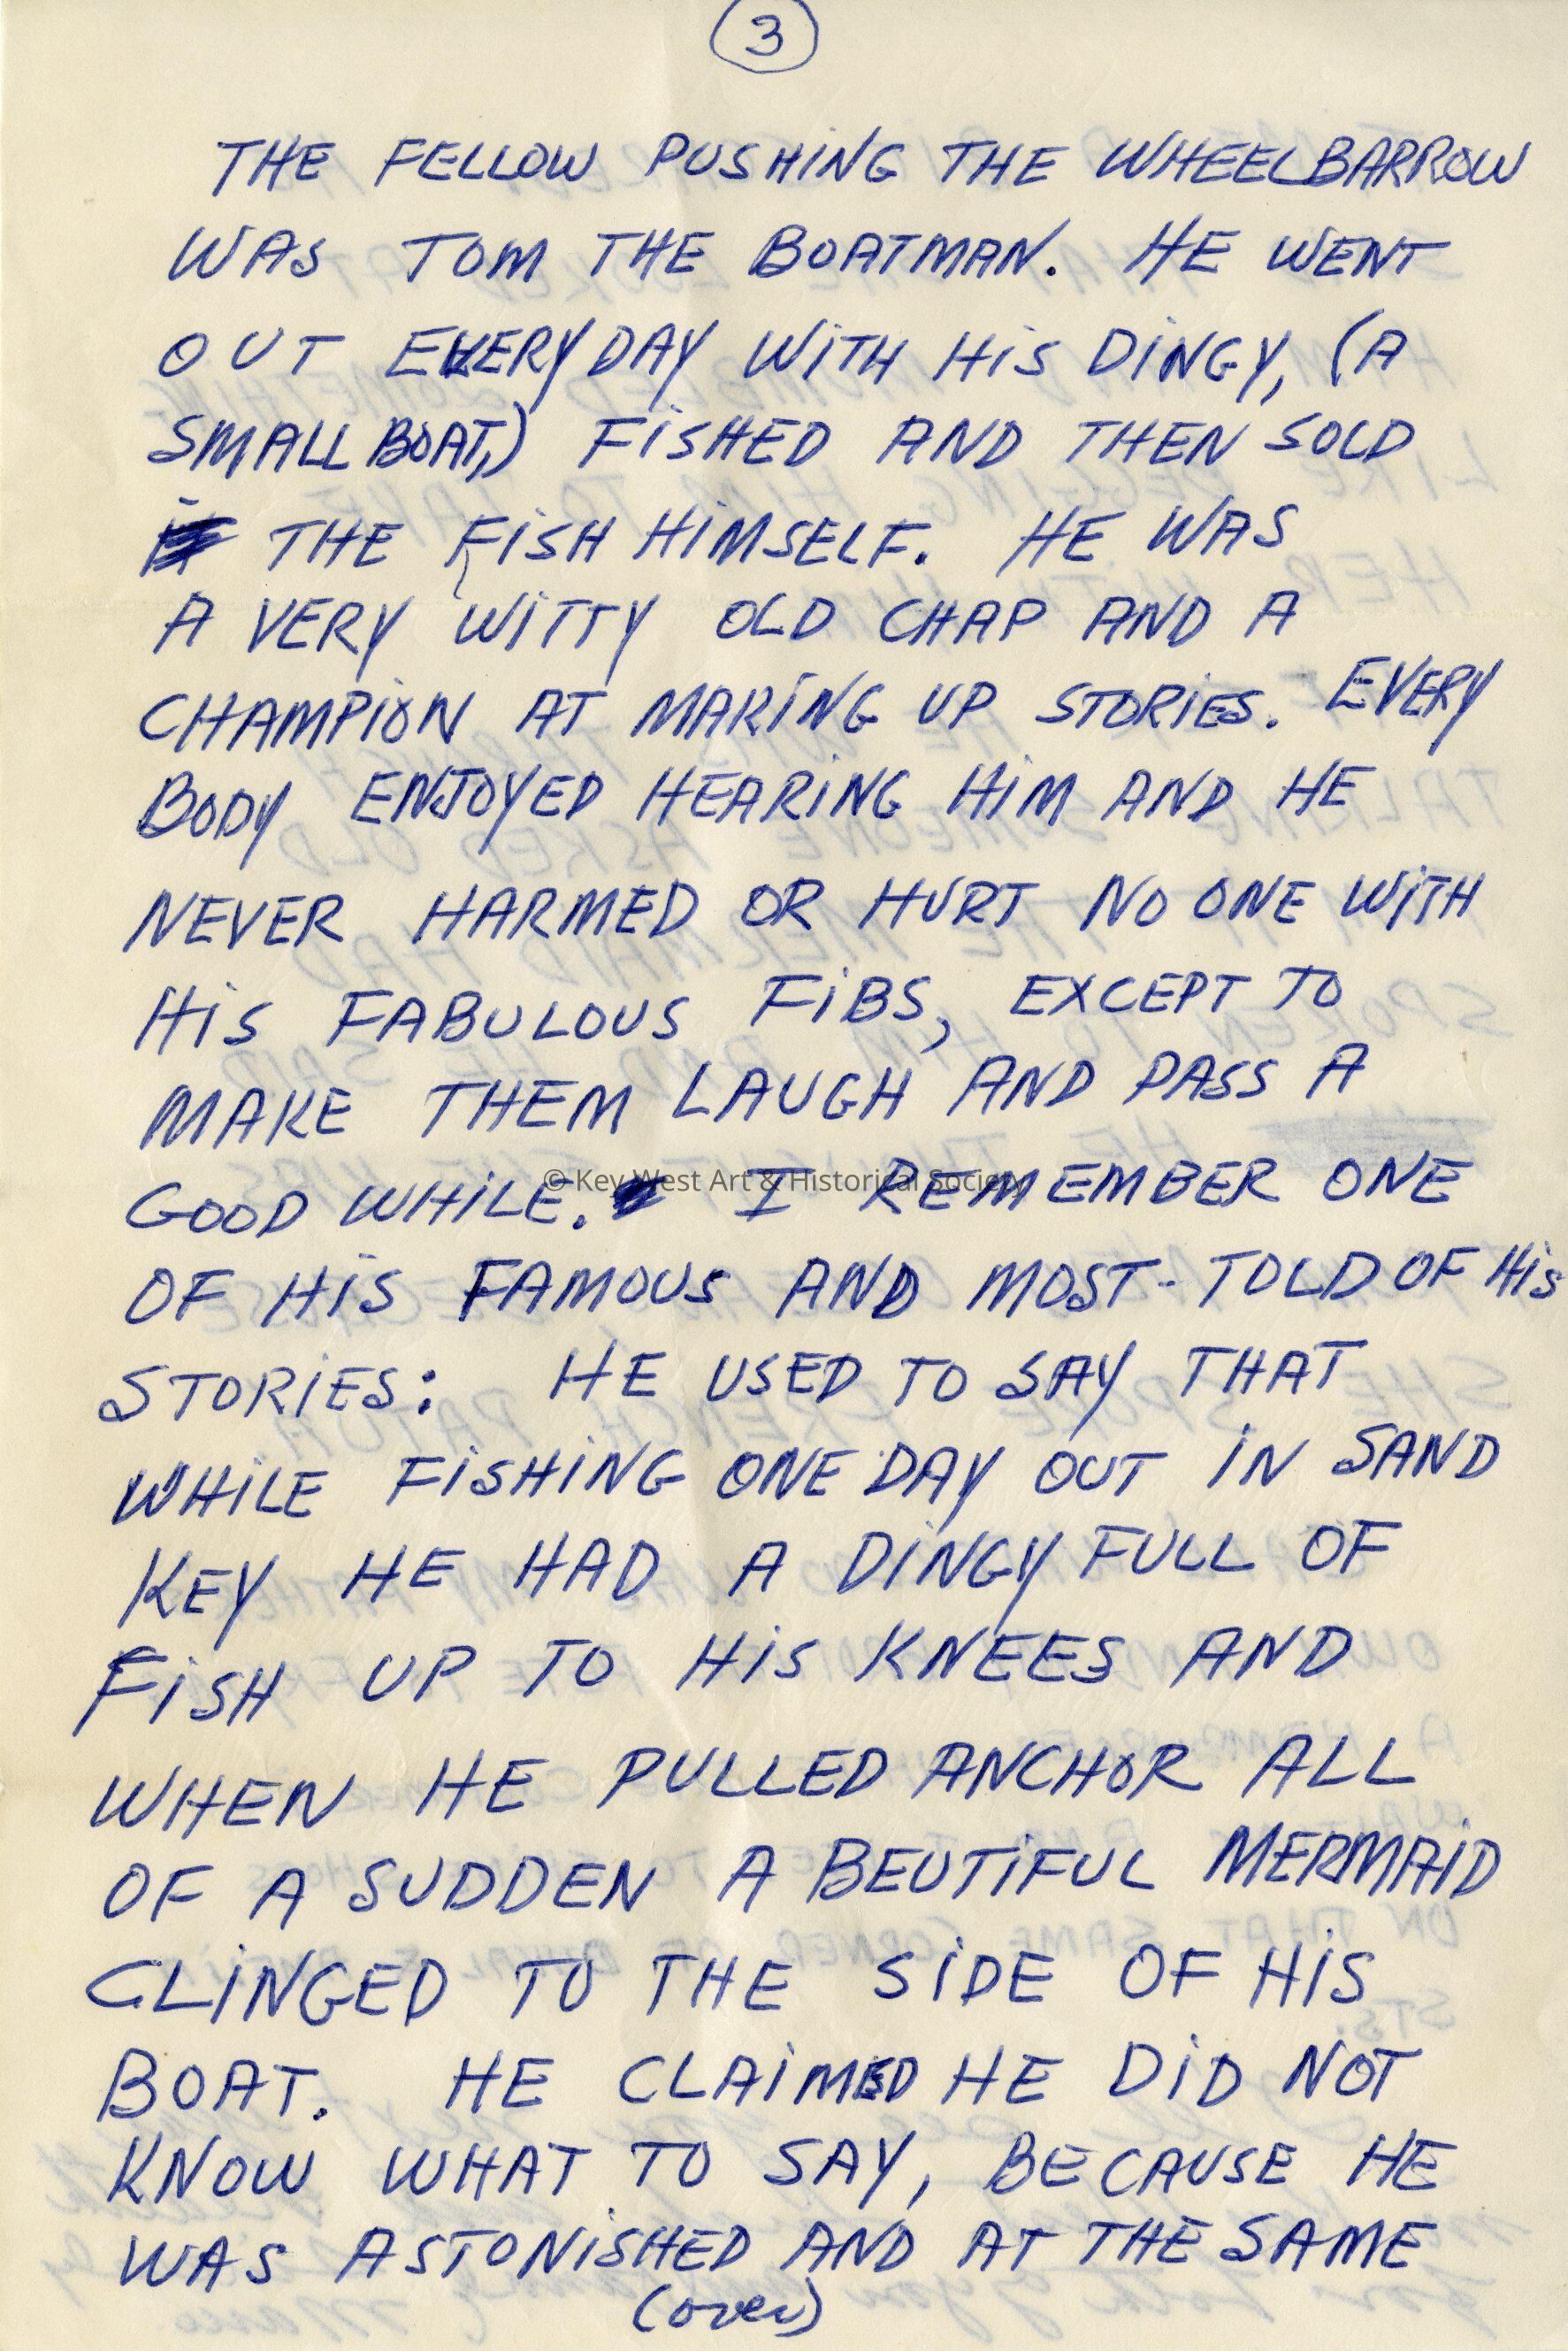 3
THE FELLOW PUSHING THE WHEELBARROW
WAS TOM THE BOATMAN. HE WENT
OUT EVERY DAY WITH HIS DINGY, (A
SMALL BOAT,) FISHED AND THEN SOLD
THE FISH HIMSELF. HE WAS
A VERY WITTY OLD CHAP AND A
CHAMPION AT MAKING UP STORIES. EVERY
BODY ENJOYED HEARING HIM AND HE
NEVER HARMED OR HURT NO ONE WITH
HIS FABULOUS FIBS, EXCEPT TO
MAKE THEM LAUGH AND PASS A
GOOD WHILE. I REMEMBER ONE
© Key West Art & Historical Society
OF HIS FAMOUS AND MOST-TOLD OF HIS
STORIES: HE USED TO SAY THAT
WHILE FISHING ONE DAY OUT IN SAND
KEY HE HAD A DINGY FULL OF
FISH UP TO HIS KNEES AND
WHEN HE PULLED ANCHOR ALL
OF A SUDDEN A BEUTIFUL MERMAID
CLINGED TO THE SIDE OF HIS
BOAT. HE CLAIMED HE DID NOT
KNOW WHAT TO SAY, BECAUSE HE
WAS ASTONISHED AND AT THE SAME
(over)